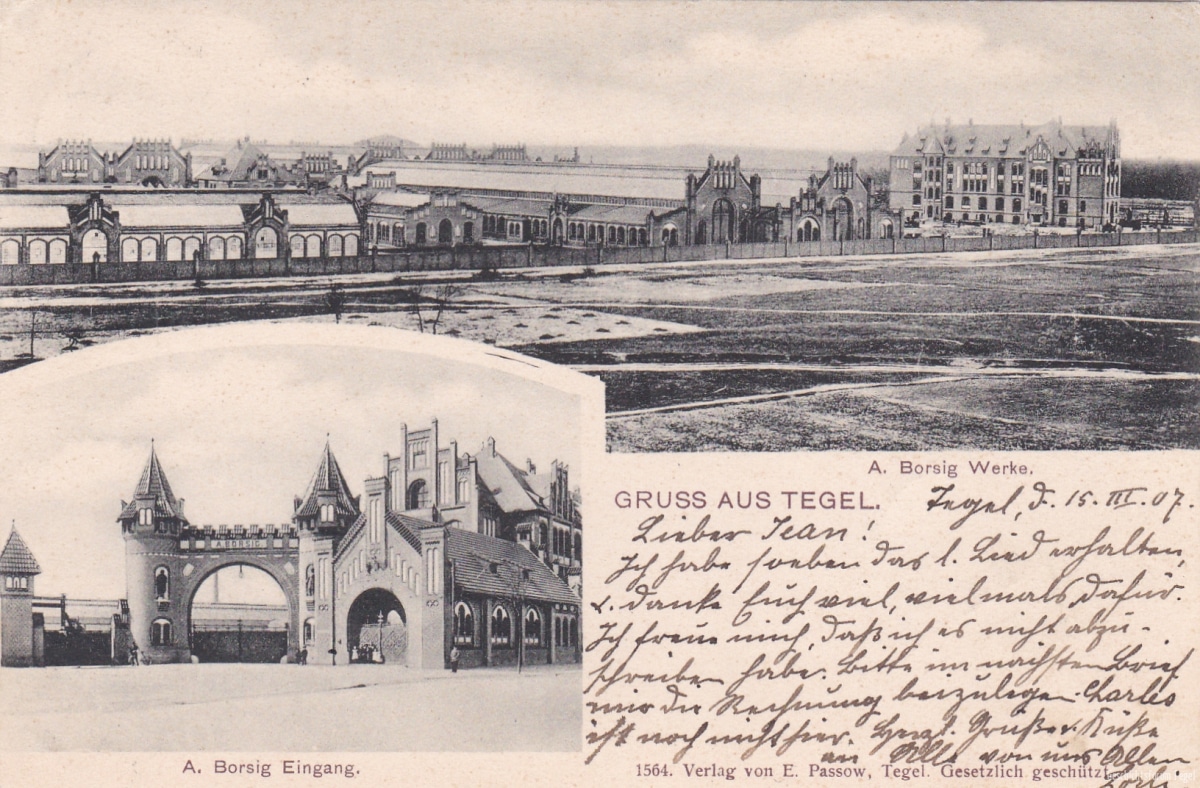 A. BORSIG
A. Borsig Werke.
GRUSS AUS TEGEL.
Tegel, d. 15. III. 07.
Lieber Jean!
Ich habe soeben das l. Lied erhalten,
u. danke Euch viel, vielmals dafür.
Ich freue mich, daß ich es nicht abzu-
schreiben habe. Bitte im nächsten Brief
mir die Rechnung beizulegen. Charles
ist noch nicht hier. Herzl. Grüße u. Küße
an Alle von uns Allen
A. Borsig Eingang.
1564. Verlag von E. Passow, Tegel. Gesetzlich geschützt.